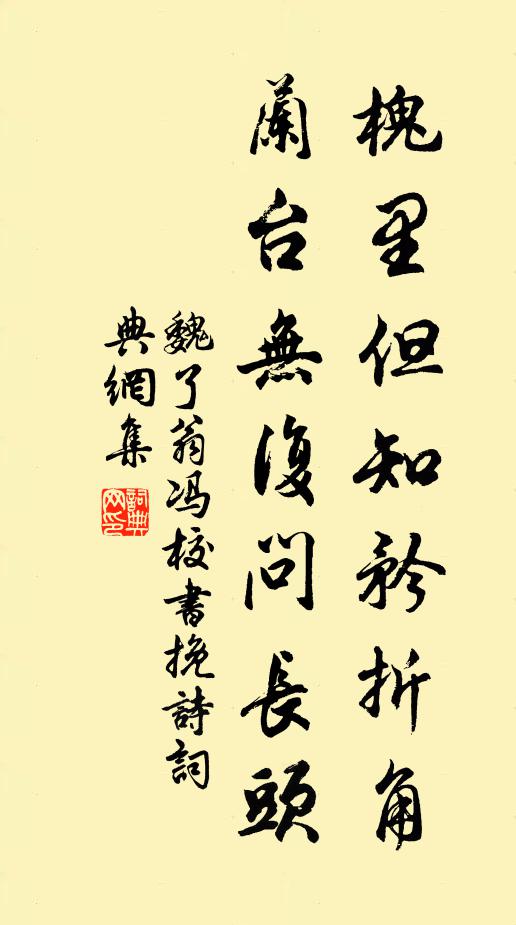 槐里但知矜折角
蘭台無復問長頭
魏了翁馮校書挽詩詞
典網集
詞典網印